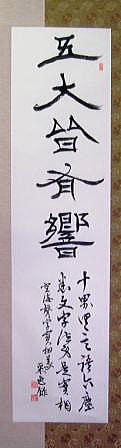 五大皆有響
十界具言語六塵
悉文字法身是實相
空海聲字實相義